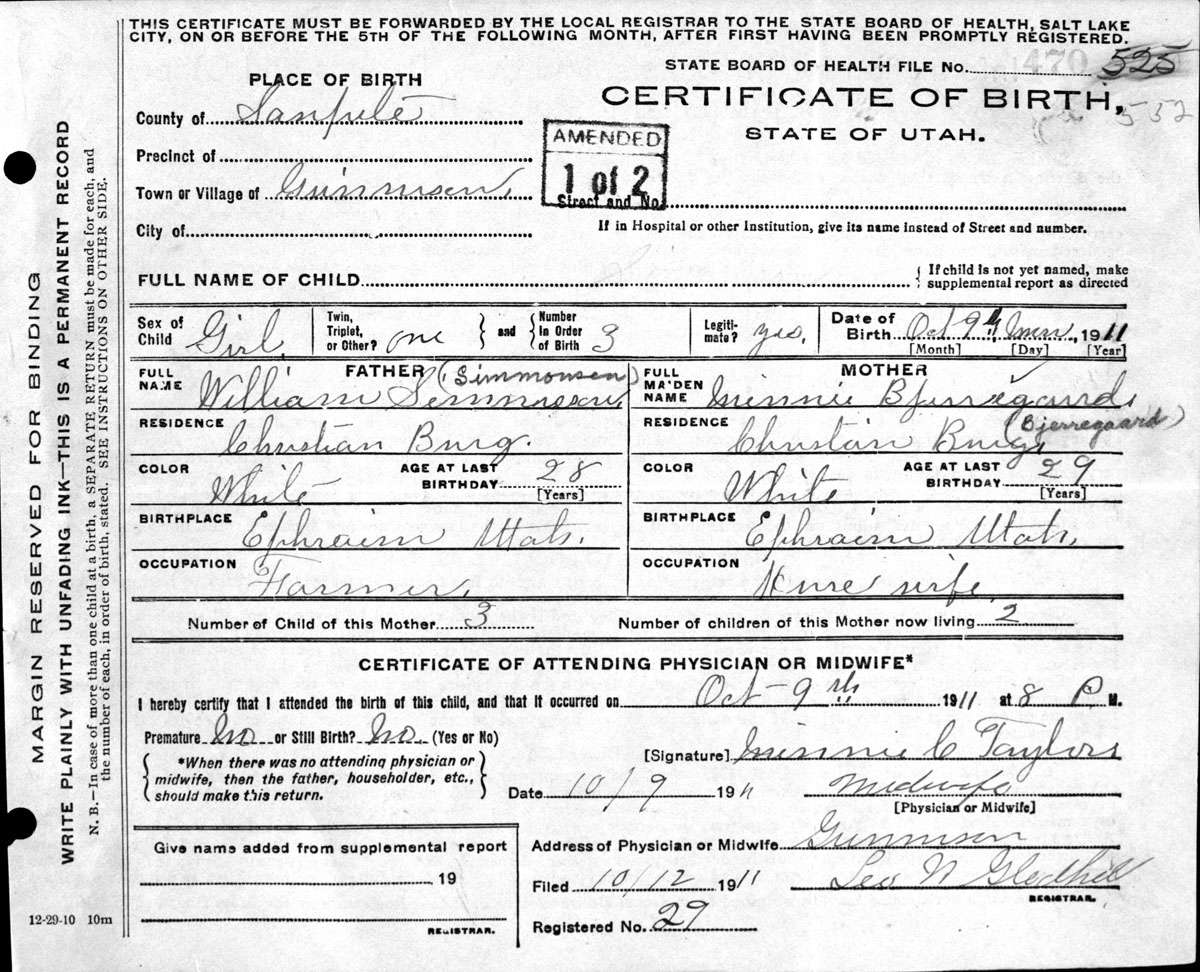 THIS CERTIFICATE MUST BE FORWARDED BY THE LOCAL REGISTRAR TO THE STATE BOARD OF HEALTH, SALT LAKE
CITY, ON OR BEFORE THE 5TH OF THE FOLLOWING MONTH, AFTER FIRST HAVING BEEN PROMPTLY REGISTERED.
STATE BOARD OF HEALTH FILE No. 470 525
532
PLACE OF BIRTH
CERTIFICATE OF BIRTH,
STATE OF UTAH.
County of Sanpete
Precinct of
Town or Village of Gunnison
City of
AMENDED
1 of 2
Street and No.
If in Hospital or other Institution, give its name instead of Street and number.
FULL NAME OF CHILD
{ If child is not yet named, make
supplemental report as directed
Sex of Child Girl
Twin, Triplet, or Other? one } and { Number in Order of Birth 3
Legiti-mate? yes,
Date of Birth Oct 9th 1911
[Month] [Day] [Year]
FATHER
FULL NAME William (Simmonsen)
RESIDENCE Christian Burg.
COLOR White
AGE AT LAST BIRTHDAY 28
[Years]
BIRTHPLACE Ephraim Utah.
OCCUPATION Farmer,
MOTHER
FULL MAIDEN NAME Minnie Bjerregaard
(Bjerregaard)
RESIDENCE Christain Burg
COLOR White
AGE AT LAST BIRTHDAY 29
[Years]
BIRTHPLACE Ephraim Utah,
OCCUPATION wife
Number of Child of this Mother 3
Number of children of this Mother now living 2
CERTIFICATE OF ATTENDING PHYSICIAN OR MIDWIFE*
I hereby certify that I attended the birth of this child, and that it occurred on Oct-9th 1911 at 8 P. M.
Premature No or Still Birth? No (Yes or No)
{ *When there was no attending physician or
midwife, then the father, householder, etc.,
should make this return. }
[Signature] Minnie C Taylor
Date 10/9 1911
Midwife
[Physician or Midwife]
Address of Physician or Midwife Gunnison
Filed 10/12 1911
Leo N Gledhill
REGISTRAR.
Registered No. 29
Give name added from supplemental report
, 19
REGISTRAR.
12-29-10 10m
MARGIN RESERVED FOR BINDING
WRITE PLAINLY WITH UNFADING INK—THIS IS A PERMANENT RECORD
N. B.—In case of more than one child at a birth, a SEPARATE RETURN must be made for each, and
the number of each, in order of birth, stated. SEE INSTRUCTIONS ON OTHER SIDE.